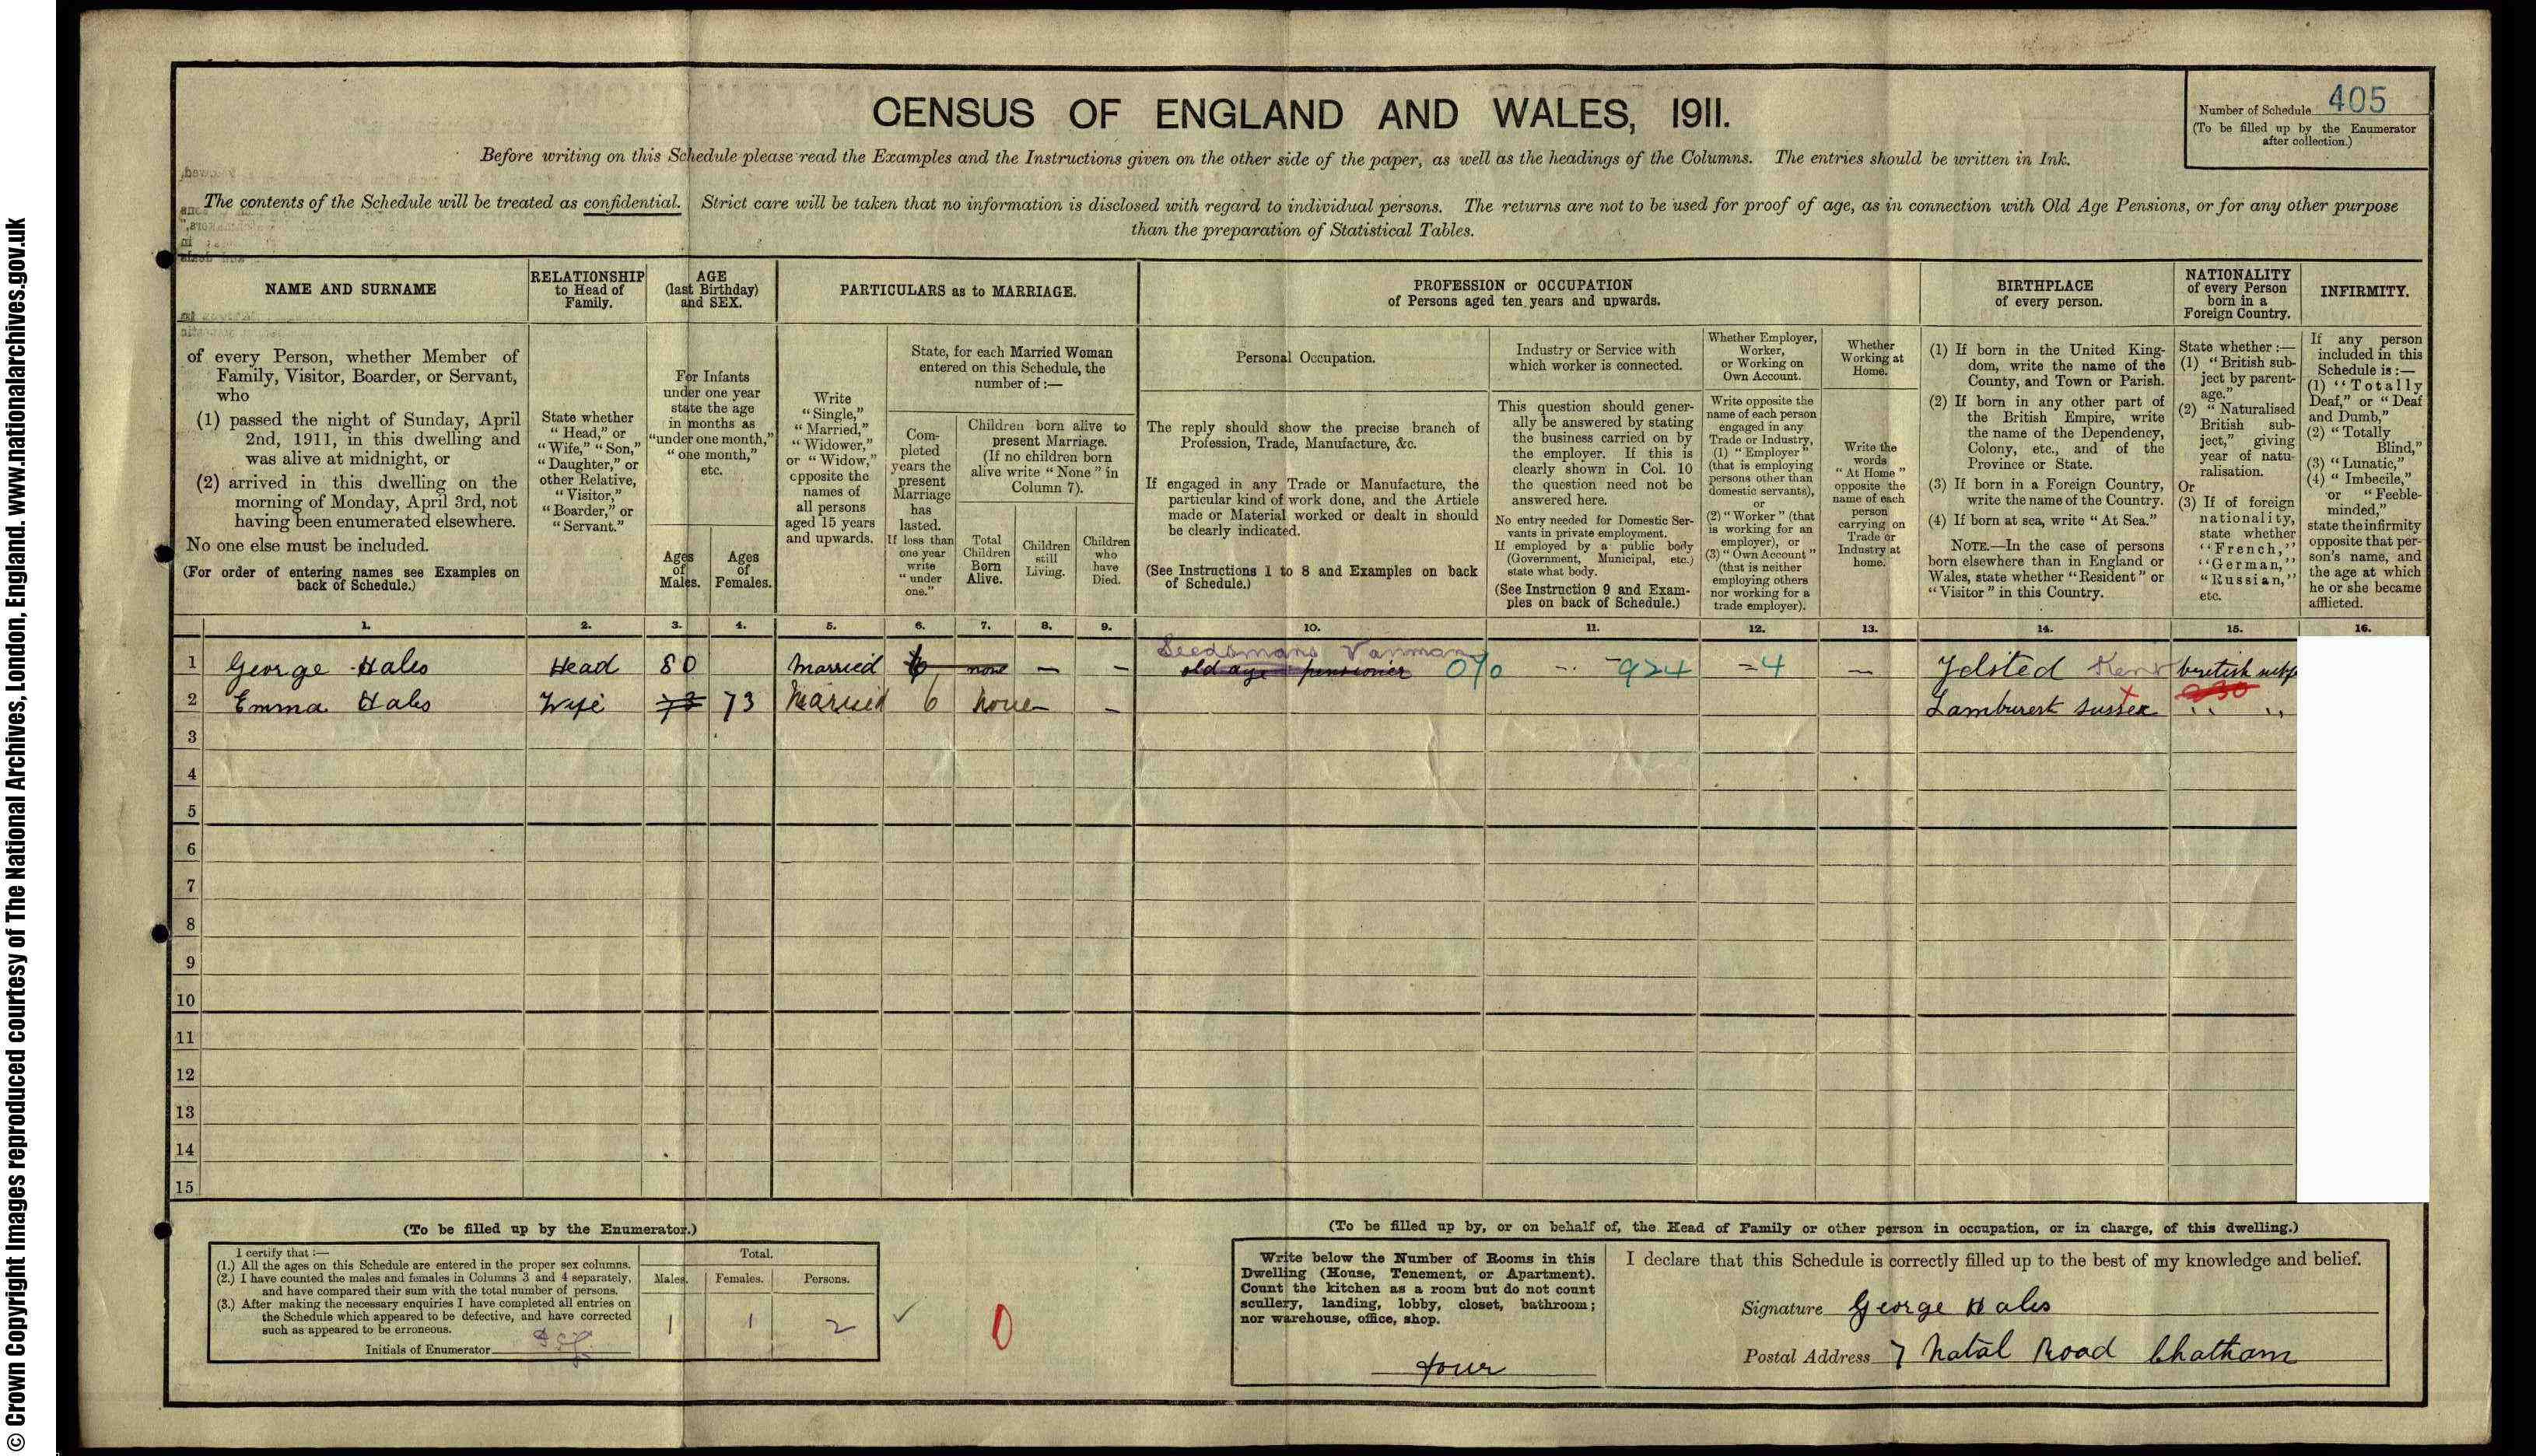 © Crown Copyright Images reproduced courtesy of The National Archives, London, England. www.nationalarchives.gov.uk
CENSUS OF ENGLAND AND WALES, 1911.
Number of Schedule 405
(To be filled up by the Enumerator
after collection.)
Before writing on this Schedule please read the Examples and the Instructions given on the other side of the paper, as well as the headings of the Columns. The entries should be written in Ink.
The contents of the Schedule will be treated as confidential. Strict care will be taken that no information is disclosed with regard to individual persons. The returns are not to be used for proof of age, as in connection with Old Age Pensions, or for any other purpose
than the preparation of Statistical Tables.
NAME AND SURNAME
of every Person, whether Member of
Family, Visitor, Boarder, or Servant,
who
(1) passed the night of Sunday, April
2nd, 1911, in this dwelling and
was alive at midnight, or
(2) arrived in this dwelling on the
morning of Monday, April 3rd, not
having been enumerated elsewhere.
No one else must be included.
(For order of entering names see Examples on
back of Schedule.)
RELATIONSHIP
to Head of
Family.
State whether
"Head," or
"Wife," "Son,"
"Daughter," or
other Relative,
"Visitor,"
"Boarder," or
"Servant."
AGE
(last Birthday)
and SEX.
For Infants
under one year
state the age
in months as
"under one month,"
"one month,"
etc.
Ages
of
Males.
Ages
of
Females.
PARTICULARS as to MARRIAGE.
Write
"Single,"
"Married,"
"Widower,"
or "Widow,"
opposite the
names of
all persons
aged 15 years
and upwards.
State, for each Married Woman
entered on this Schedule, the
number of:—
Com-
pleted
years the
present
Marriage
has
lasted.
If less than
one year
write
"under
one."
Children born alive to
present Marriage.
(If no children born
alive write "None" in
Column 7).
Total
Children
Born
Alive.
Children
still
Living.
Children
who
have
Died.
PROFESSION or OCCUPATION
of Persons aged ten years and upwards.
Personal Occupation.
The reply should show the precise branch of
Profession, Trade, Manufacture, &c.
If engaged in any Trade or Manufacture, the
particular kind of work done, and the Article
made or Material worked or dealt in should
be clearly indicated.
(See Instructions 1 to 8 and Examples on back
of Schedule.)
Industry or Service with
which worker is connected.
This question should gener-
ally be answered by stating
the business carried on by
the employer. If this is
clearly shown in Col. 10
the question need not be
answered here.
No entry needed for Domestic Ser-
vants in private employment.
If employed by a public body
(Government, Municipal, etc.)
state what body.
(See Instruction 9 and Exam-
ples on back of Schedule.)
Whether Employer,
Worker,
or Working on
Own Account.
Write opposite the
name of each person
engaged in any
Trade or Industry,
(1) "Employer"
(that is employing
persons other than
domestic servants),
or
(2) "Worker" (that
is working for an
employer), or
(3) "Own Account"
(that is neither
employing others
nor working for a
trade employer).
Whether
Working at
Home.
Write the
words
"At Home"
opposite the
name of each
person
carrying on
Trade or
Industry at
home.
BIRTHPLACE
of every person.
(1) If born in the United King-
dom, write the name of the
County, and Town or Parish.
(2) If born in any other part of
the British Empire, write
the name of the Dependency,
Colony, etc., and of the
Province or State.
(3) If born in a Foreign Country,
write the name of the Country.
(4) If born at sea, write "At Sea."
NOTE.—In the case of persons
born elsewhere than in England or
Wales, state whether "Resident" or
"Visitor" in this Country.
NATIONALITY
of every Person
born in a
Foreign Country.
State whether:—
(1) "British sub-
ject by parent-
age."
(2) "Naturalised
British sub-
ject," giving
year of natu-
ralisation.
Or
(3) If of foreign
nationality,
state whether
"French,"
"German,"
"Russian,"
etc.
INFIRMITY.
If any person
included in this
Schedule is:—
(1) "Totally
Deaf," or "Deaf
and Dumb,"
(2) "Totally
Blind,"
(3) "Lunatic,"
(4) "Imbecile,"
or "Feeble-
minded,"
state the infirmity
opposite that per-
son's name, and
the age at which
he or she became
afflicted.
1. 2. 3. 4. 5. 6. 7. 8. 9. 10. 11. 12. 13. 14. 15. 16.
Seedsmans Vanman
1 George Hales Head 80 Married 6 none — — old age pensioner 0/0 924 =4 — Ifield Kent british
2 Emma Hales Wife 73 Married 6 None — Lamburest Sussex 030 " "
3
4
5
6
7
8
9
10
11
12
13
14
15
(To be filled up by the Enumerator.)
I certify that:—
(1.) All the ages on this Schedule are entered in the proper sex columns.
(2.) I have counted the males and females in Columns 3 and 4 separately,
and have compared their sum with the total number of persons.
(3.) After making the necessary enquiries I have completed all entries on
the Schedule which appeared to be defective, and have corrected
such as appeared to be erroneous.
Initials of Enumerator
Total.
Males. Females. Persons.
1 1 2
0
(To be filled up by, or on behalf of, the Head of Family or other person in occupation, or in charge, of this dwelling.)
Write below the Number of Rooms in this
Dwelling (House, Tenement, or Apartment).
Count the kitchen as a room but do not count
scullery, landing, lobby, closet, bathroom;
nor warehouse, office, shop.
four
I declare that this Schedule is correctly filled up to the best of my knowledge and belief.
Signature George Hales
Postal Address 7 Natal Road Chatham